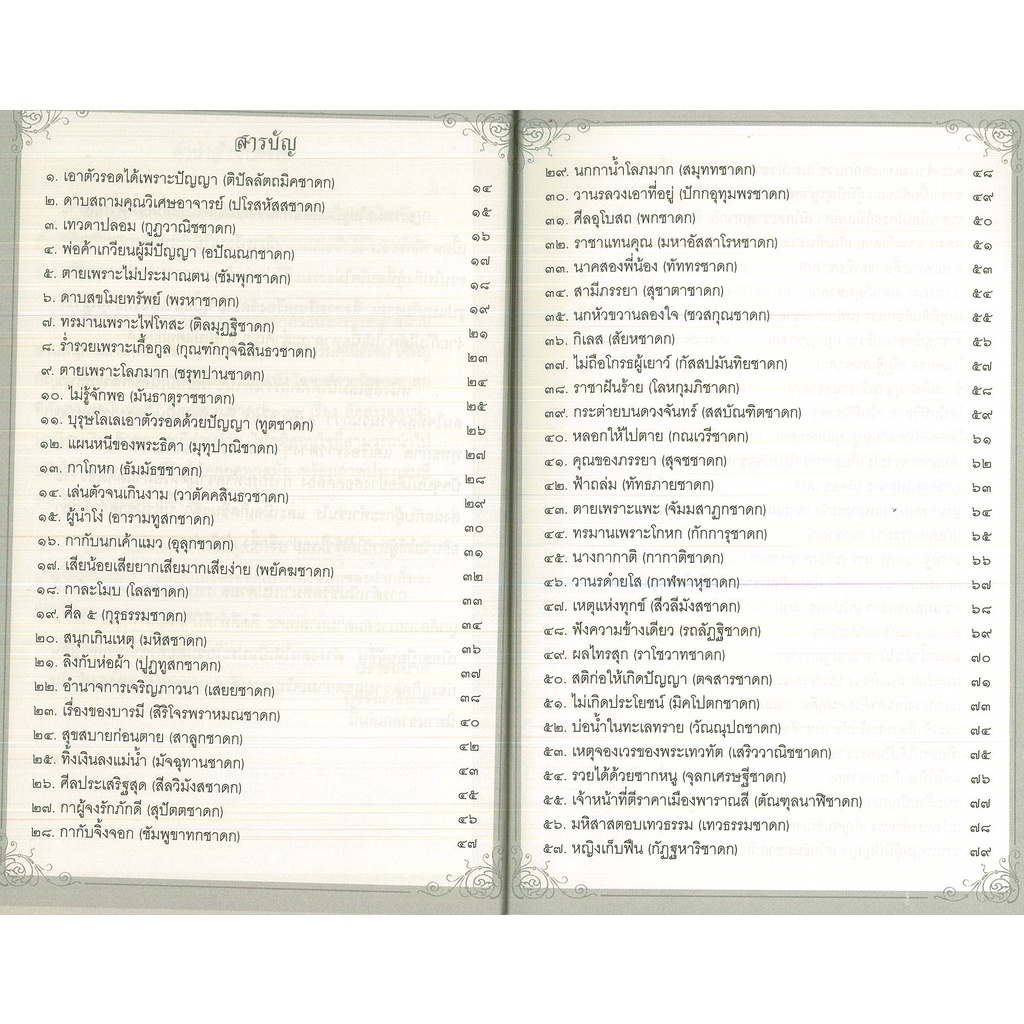 สารบัญ
๑. เอาตัวรอดได้เพราะปัญญา (ติปัลลัตถมิคชาดก) ๑๔
๒. ดาบสถามคุณวิเศษอาจารย์ (ปโรสหัสสชาดก) ๑๕
๓. เทวดาปลอม (กูฏวาณิชชาดก) ๑๖
๔. พ่อค้าเกวียนผู้มีปัญญา (อปัณณกชาดก) ๑๗
๕. ตายเพราะไม่ประมาณตน (ชัมพุกชาดก) ๑๘
๖. ดาบสขโมยทรัพย์ (พรหาชาดก) ๑๙
๗. ทรมานเพราะไฟโทสะ (ติลมุฏฐิชาดก) ๒๑
๘. ร่ำรวยเพราะเกื้อกูล (กุณฑกกุจฉิสินธวชาดก) ๒๓
๙. ตายเพราะโลภมาก (ชรุทปานชาดก) ๒๔
๑๐. ไม่รู้จักพอ (มันธาตุราชชาดก) ๒๕
๑๑. บุรุษโลเลเอาตัวรอดด้วยปัญญา (ทูตชาดก) ๒๖
๑๒. แผนหนีของพระธิดา (มุทุปาณิชาดก) ๒๗
๑๓. กาโกหก (ธัมมัธชชาดก) ๒๘
๑๔. เล่นตัวจนเกินงาม (วาตัคคสินธวชาดก) ๒๙
๑๕. ผู้นำโง่ (อารามทูสกชาดก) ๓๐
๑๖. กากับนกเค้าแมว (อุลุกชาดก) ๓๑
๑๗. เสียน้อยเสียยากเสียมากเสียง่าย (พยัคฆชาดก) ๓๒
๑๘. กาละโมบ (โลลชาดก) ๓๓
๑๙. ศีล ๕ (กุรุธรรมชาดก) ๓๔
๒๐. สนุกเกินเหตุ (มหิสชาดก) ๓๖
๒๑. ลิงกับห่อผ้า (ปูฏทูสกชาดก) ๓๗
๒๒. อำนาจการเจริญภาวนา (เสยยชาดก) ๓๘
๒๓. เรื่องของบารมี (สิริโจรพราหมณชาดก) ๔๐
๒๔. สุขสบายก่อนตาย (สาลูกชาดก) ๔๒
๒๕. ทิ้งเงินลงแม่น้ำ (มัจฉุทานชาดก) ๔๓
๒๖. ศีลประเสริฐสุด (สีลวิมังสชาดก) ๔๕
๒๗. กาผู้จงรักภักดี (สุปัตตชาดก) ๔๖
๒๘. กากับจิ้งจอก (ชัมพูขาทกชาดก) ๔๗
๒๙. นกกาน้ำโลภมาก (สมุททชาดก) ๔๘
๓๐. วานรลวงเอาที่อยู่ (ปักกอุทุมพรชาดก) ๔๙
๓๑. ศีลอุโบสถ (พกชาดก) ๕๐
๓๒. ราชาแทนคุณ (มหาอัสสาโรหชาดก) ๕๑
๓๓. นาคสองพี่น้อง (ทัททรชาดก) ๕๓
๓๔. สามีภรรยา (สุชาตาชาดก) ๕๔
๓๕. นกหัวขวานลองใจ (ชวสกุณชาดก) ๕๕
๓๖. กิเลส (สัยหชาดก) ๕๖
๓๗. ไม่ถือโกรธผู้เยาว์ (กัสสปมันทิยชาดก) ๕๗
๓๘. ราชาฝันร้าย (โลหกุมภิชาดก) ๕๘
๓๙. กระต่ายบนดวงจันทร์ (สสบัณฑิตชาดก) ๕๙
๔๐. หลอกให้ไปตาย (กณเวรีชาดก) ๖๑
๔๑. คุณของภรรยา (สุจชชาดก) ๖๒
๔๒. ฟ้าถล่ม (ทัทธภายชาดก) ๖๓
๔๓. ตายเพราะแพะ (จัมมสาฏกชาดก) ๖๔
๔๔. ทรมานเพราะโกหก (กักการุชาดก) ๖๕
๔๕. นางกากาติ (กากาติชาดก) ๖๖
๔๖. วานรดำยโส (กาฬพาหุชาดก) ๖๗
๔๗. เหตุแห่งทุกข์ (สีวลีมังสชาดก) ๖๘
๔๘. ฟังความข้างเดียว (รถลัฏฐิชาดก) ๖๙
๔๙. ผลไทรสุก (ราโชวาทชาดก) ๗๐
๕๐. สติก่อให้เกิดปัญญา (ตจสารชาดก) ๗๑
๕๑. ไม่เกิดประโยชน์ (มิคโปตกชาดก) ๗๓
๕๒. บ่อน้ำในทะเลทราย (วัณณุปถชาดก) ๗๔
๕๓. เหตุจองเวรของพระเทวทัต (เสริววาณิชชาดก) ๗๕
๕๔. รวยได้ด้วยซากหนู (จุลกเศรษฐีชาดก) ๗๖
๕๕. เจ้าหน้าที่ตีราคาเมืองพาราณสี (ตัณฑุลนาฬิชาดก) ๗๗
๕๖. มหิสาสตอบเทวธรรม (เทวธรรมชาดก) ๗๘
๕๗. หญิงเก็บฟืน (กัฏฐหาริชาดก) ๗๙